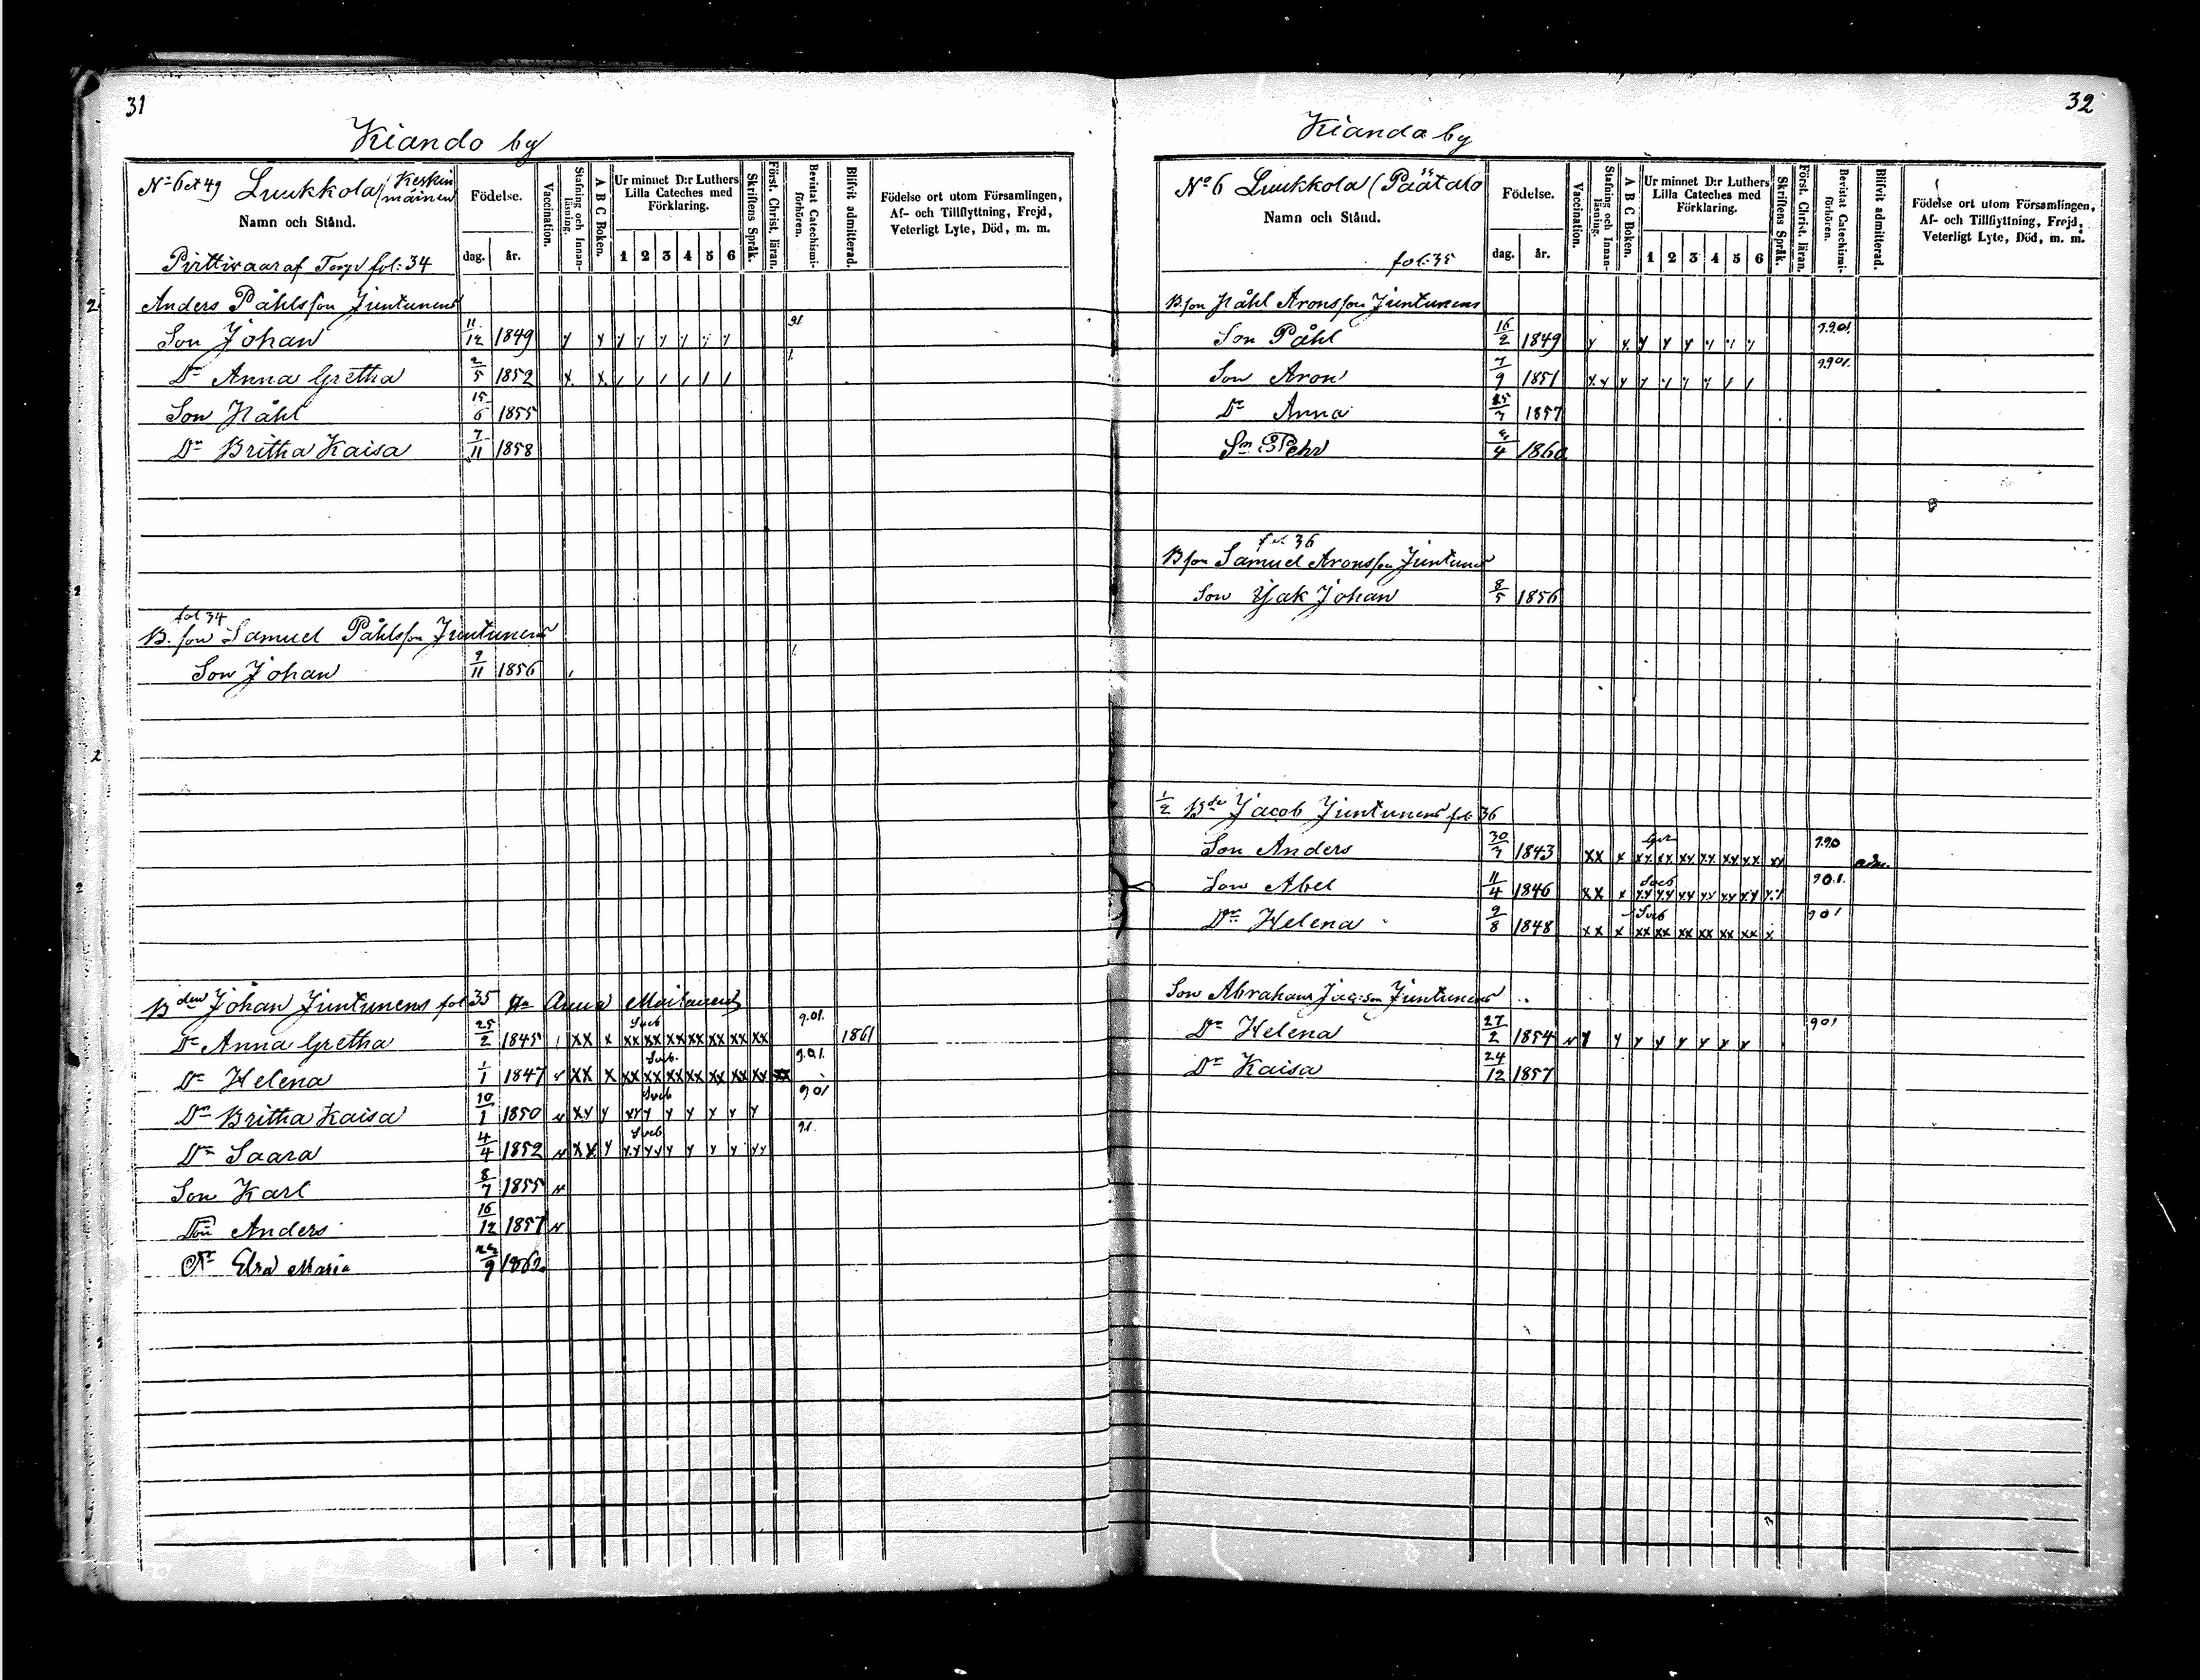 31
Kiando by
No 6 et 49 Luukkola (Keskin
mäinen
Namn och Stånd.
Födelse.
dag. år.
Vaccination.
Stafning och Innan-
läsning.
A B C Boken.
Ur minnet D:r Luthers
Lilla Cateches med
Förklaring.
1 2 3 4 5 6
Skriftens Språk.
Först. Christ. läran.
Bevistat Catechismi-
förhören.
Blifvit admitterad.
Födelse ort utom Församlingen,
Af- och Tillflyttning, Frejd,
Veterligt Lyte, Död, m. m.
Pirttivaara fol: 34
Anders Påhlsson Juntunens
Son Johan 11/12 1849 91
Dr Anna Gretha 2/5 1852
Son Påhl 15/6 1855
Dr Britha Kaisa 7/11 1858
fol 34
B. son Samuel Påhlsson Juntunens
Son Johan 9/11 1856
Bden Johan Juntunens fol 35 Anna
Dr Anna Gretha 25/2 1845 xx x xx xx xx xx xx xx xx 9.01. 1861
Dr Helena 1/1 1847 xx x xx xx xx xx xx xx xx xx 9.01.
Dr Britha Kaisa 10/1 1850 901
Dr Saara 4/4 1852 91.
Son Karl 8/7 1855
Son Anders 16/12 1857
Dr Elsa Maria 9 1862
32
Kianda by
No 6 Luukkola (Päätalo
Namn och Stånd.
fol: 35
Födelse.
dag. år.
Vaccination.
Stafning och Innan-
läsning.
A B C Boken.
Ur minnet D:r Luthers
Lilla Cateches med
Förklaring.
1 2 3 4 5 6
Skriftens Språk.
Först. Christ. läran.
Bevistat Catechismi-
förhören.
Blifvit admitterad.
Födelse ort utom Församlingen,
Af- och Tillflyttning, Frejd,
Veterligt Lyte, Död, m. m.
B. son Påhl Aronsson Juntunens
Son Påhl 16/2 1849 9.9.01.
Son Aron 7/9 1851 9.901.
Dr Anna 25/7 1857
Sn Pehr 4 1860
fol. 36
B son Samuel Aronsson Juntunens
Son Isak Johan 8/5 1856
1/2 Bde Jacob Juntunens fol: 36
Son Anders 30/7 1843 xx x xx xx xx xx xx xx xx 9.90 adm.
Son Abel 11/4 1846 xx x 90.1.
Dr Helena 9/8 1848 xx x xx xx xx xx xx xx x 901
Son Abraham Jacsson Juntunens
Dr Helena 27/2 1854 901
Dr Kaisa 24/12 1857